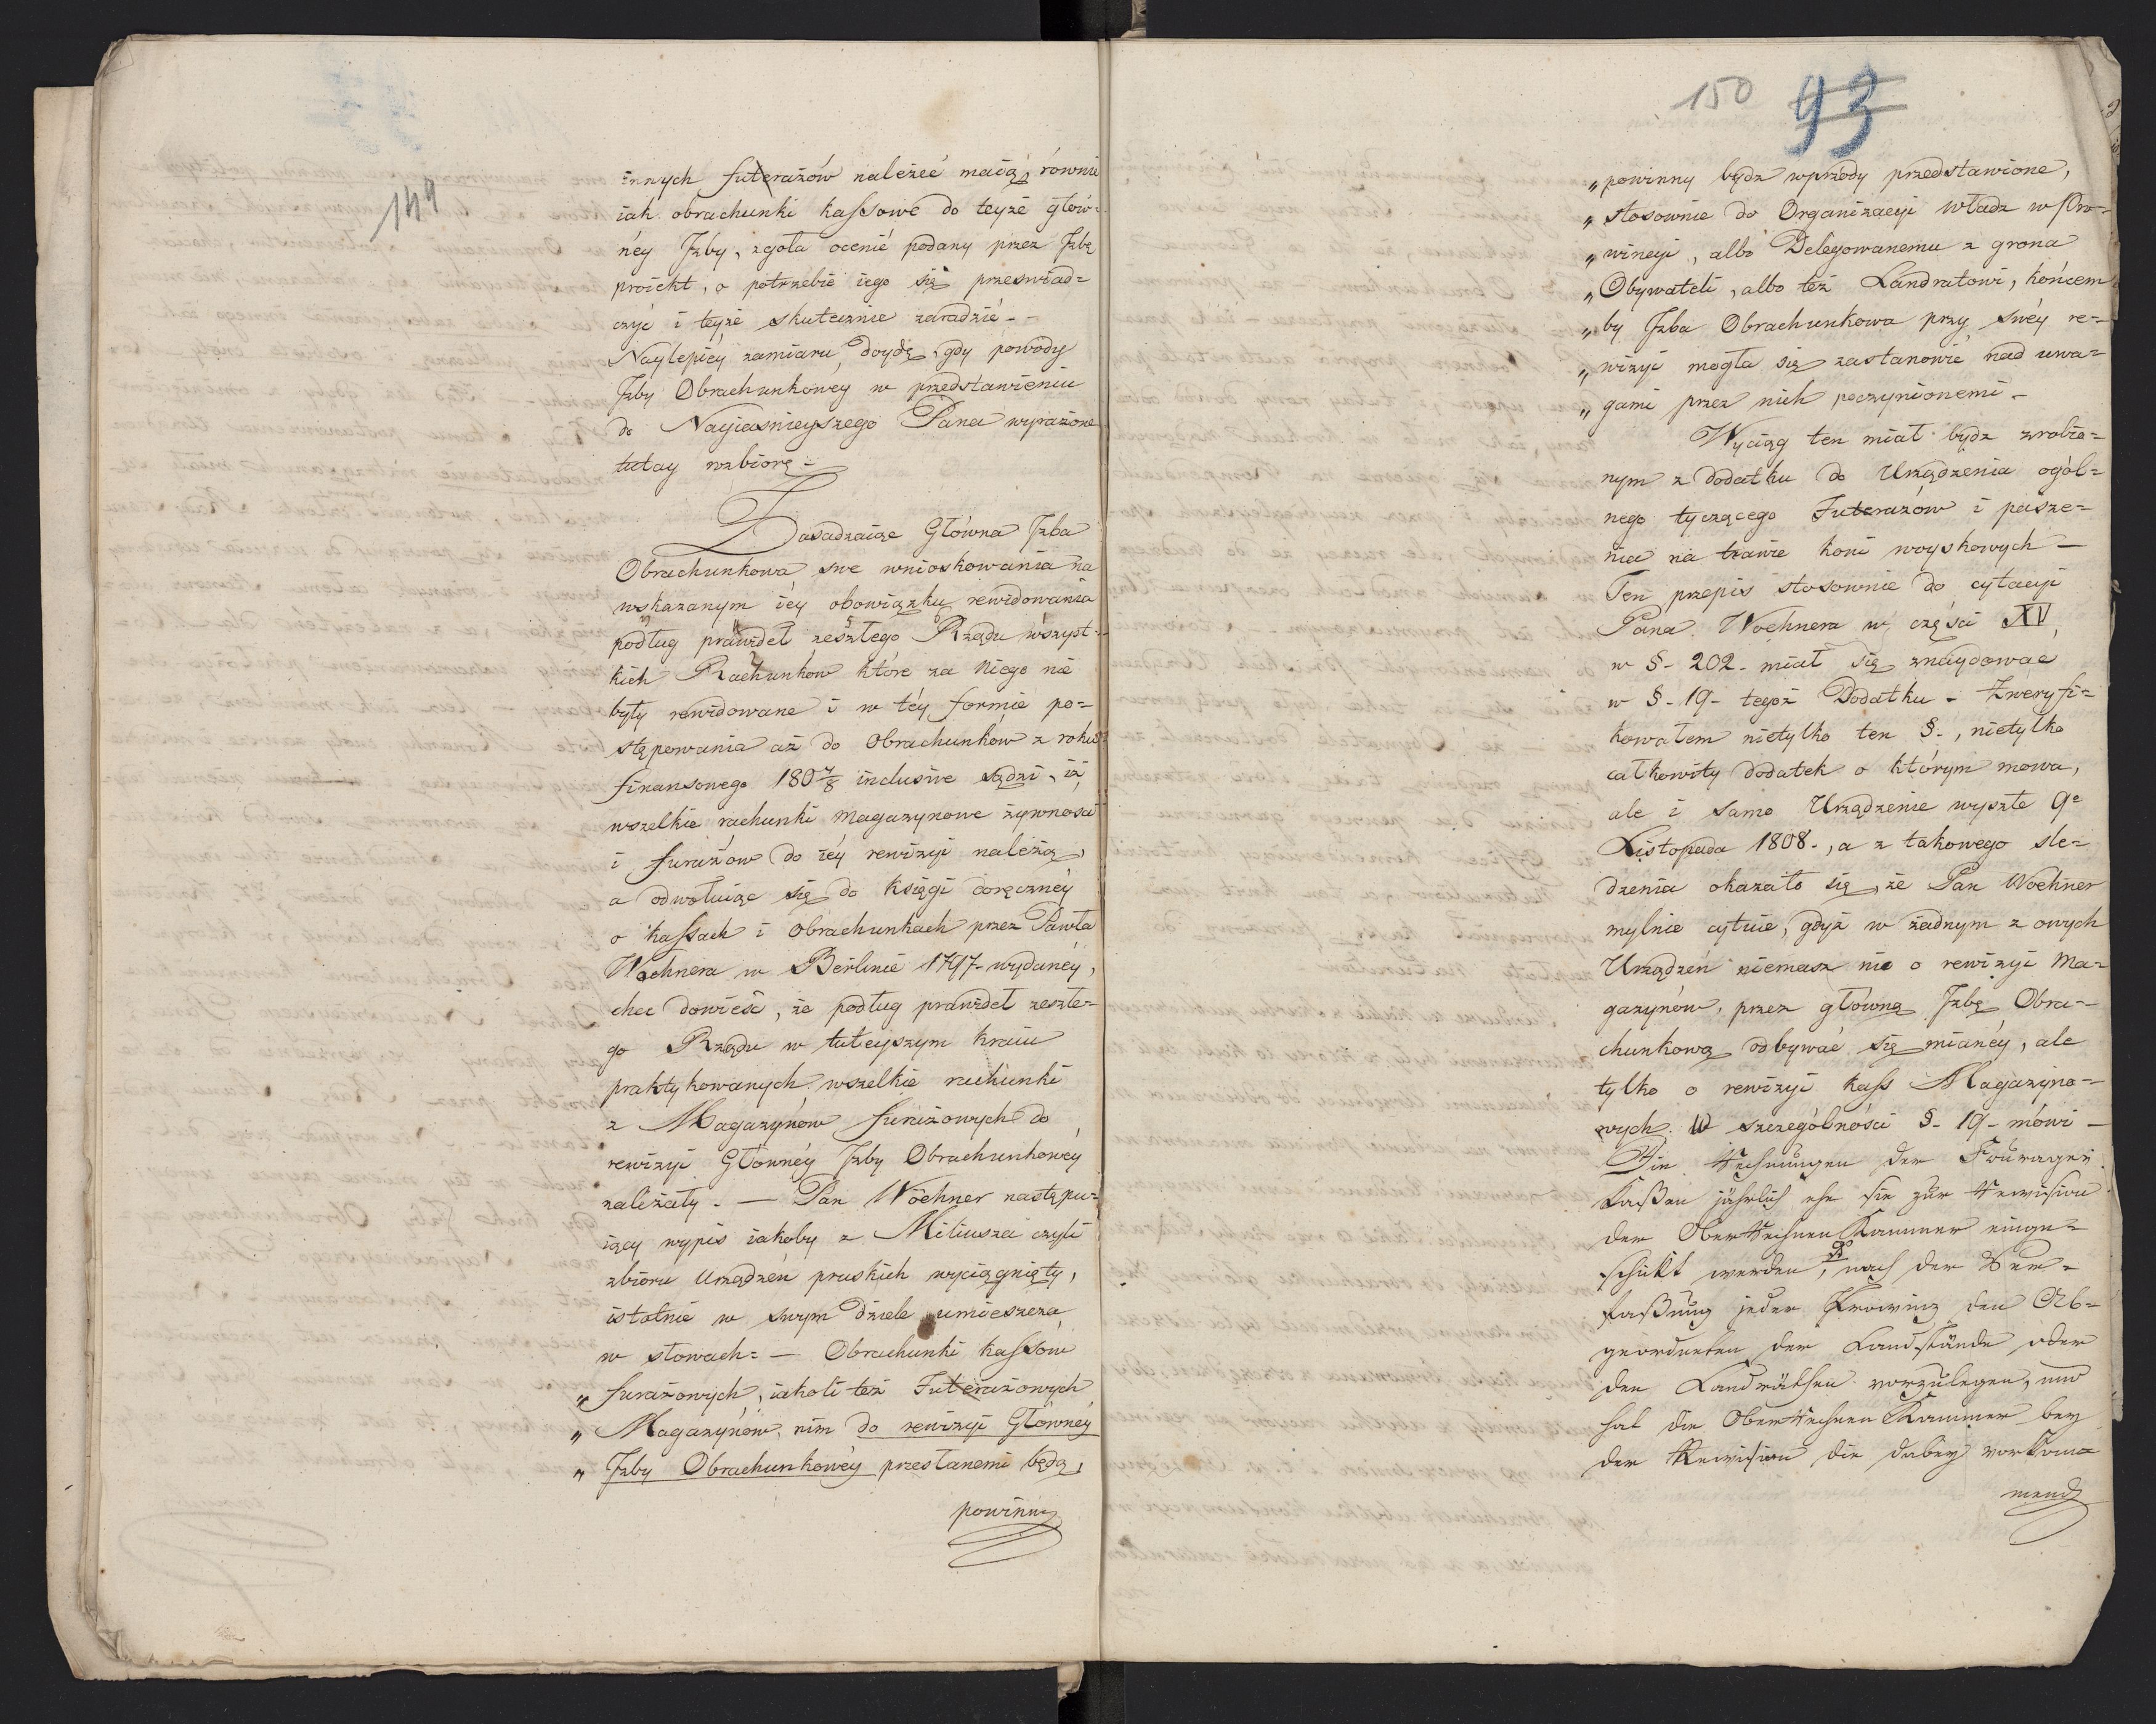 149
innych futerażów należéć maią, równie
iak obrachunki kassowe do teyże głow-
néy Jzby, zgoła ocenić podany przez Jzbę
proiekt, o potrzebie iego się przeswiad-
czyć i teyże skutecznie zaradzić. -
Naylepiéy zamiaru doydę, gdy powody
Jzby Obrachunkowey w przedstawieniu
do Nayiasnieyszego Pana wyrażone
tutay wzbiorę. -
Zasadzaiąc Główna Jzba
Obrachunkowa swe wnioskowania na
wskazanym iéy obowiązku rewidowania
podług prawideł zeszłego Rządu wszyst-
kich Rachunków które za niego nie
były rewidowane i w téy formie po-
stępowania aż do Obrachunków z roku
finansowego 180 7/8 inclusive sądzi, iż
wszelkie rachunki magazynowe żywnosci
i furażow do iéy rewizyi należą,
a odwołuiąc się do Księgi doręcznéy
o Kassach i Obrachunkach przez Pawła
Woehnera w Berlinie 1797 - wydanéy,
chce dowieść, że podług prawideł zeszłe-
go Rządu w tuteyszym Kraiu
praktykowanych wszelkie rachunki
z Magazynów furażowych do
rewizyi Głównéy Jzby Obrachunkowéy
należały. - Pan Wöehner następu-
iący wypis iakoby z Miliusza czyli
zbioru Urządzeń pruskich wyciągnięty,
istotnie w swym dziele umieszcza
w słowach: - Obrachunki Kassów
„ furażowych, iakoli też Futerażowych
„ Magazynów, nim do rewizyi Głównéy
„ Jzby Obrachunkowéy przesłanemi będą,
powinny
150 93
„ powinny będz wprzódy przedstawione,
„ stosownie do Organizacyi władz w Pro-
„ wincyi, albo Delegowanemu z grona
„ Obywateli, albo też Landratowi, końcem
„ by Jzba Obrachunkowa przy swéy re-
„ wizyi mogła się zastanowić nad uwa-
„ gami przez nich poczynionemi. -
Wyciąg ten miał będz zrobio-
nym z dodatku do Urządzenia ogól-
nego tyczącego Futerażów i pasze-
nia na trawie koni woyskowych -
Ten przepis stosownie do cytacyi
Pana Woehnera w części XV,
w §. 202. miał się znaydować
w §. 19. tegoż Dodatku. - Zweryfi-
kowałem nietylko ten §., nietylko
całkowity dodatek o którym mowa,
ale i samo Urządzenie wyszłe 9e
Listopada 1808., a z takowego sle-
dzenia okazało się, że Pan Woehner
mylnie cytuie, gdyż w żadnym z owych
Urządzeń niemasz nic o rewizyi Ma-
gazynów, przez główną Jzbę Obra-
chunkową odbywać się mianéy, ale
tylko o rewizyi Kass Magazyno-
wych. W szczególnósci §. 19. mówi -
Die Rechnungen der Fourage
Kaßen jährlich ehe sie zur Revision
der Ober Rechnen Kammer einge-
schikt werden, nach der Ver-
faßung jeder Provinz den Ab-
geordneten der Landstände oder
den Landräthen vorzulegen, und
hat die Ober Rechnen Kammer bey
der Revision die dabey vorkom-
mend